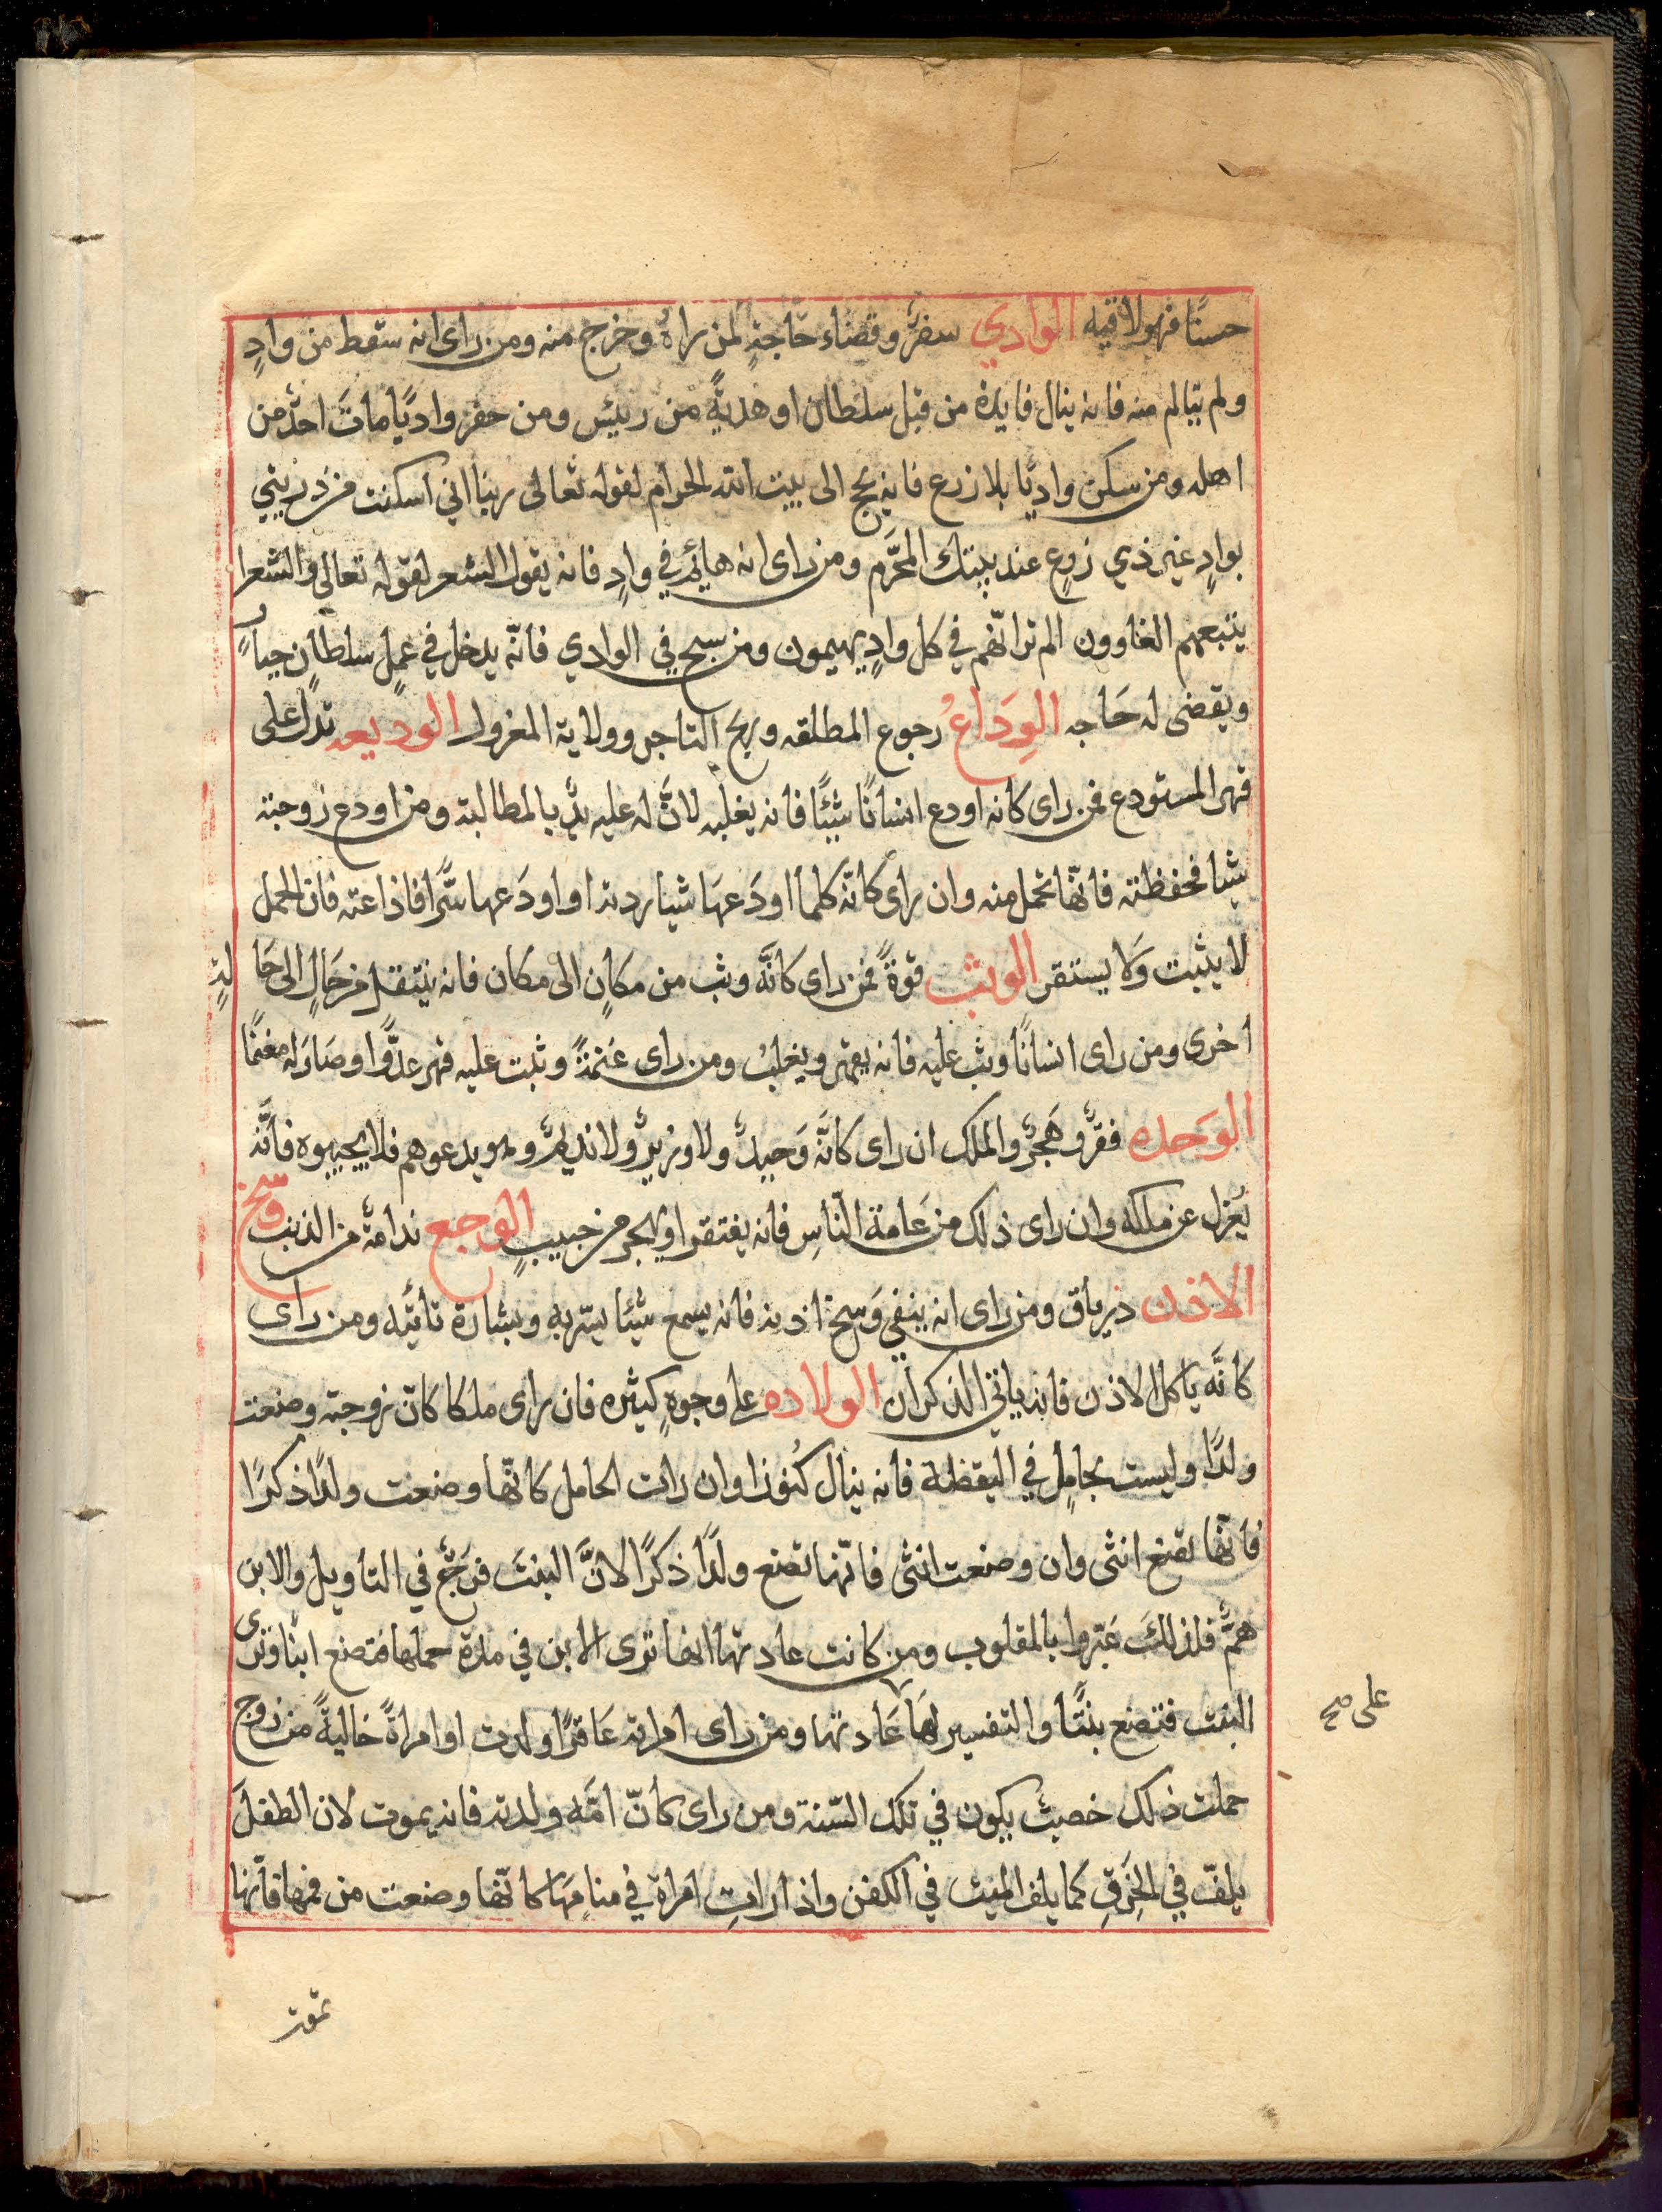 حسنًا فهو لاقيه الوادي سفرٌ وقضاء حاجةٍ لمن راهُ وخرج منه ومن راى انه سقط من وادٍ
ولم يتالم منه فانه ينال فايدة من قبل سلطان او هديةً من رييس ومن حفر واديًا ماتَ احدٌ من
اهله ومن سكن واديًا بلا زرع فانه يحج الى بيت الله الحرام لقوله تعالى ربنا اني اسكنت من ذريتي
بوادٍ غير ذي زرعٍ عند بيتك المحرَّم ومن راى انه هايم في وادٍ فانه يقول الشعر لقوله تعالى والشعرا
يتبعهم الغاوون الم تر انّهم في كل وادٍ يهيمون ومن سبح في الوادي فانّه يدخل في عمل سلطانٍ جبارٍ
ويقضى له حَاجه الوِداعُ رجوع المطلقه وربح التاجر وولاية المعزول الوديعه تدل على
قهر المستودع فمن راى كانه اودع انسانًا شيئًا فانه يغلبه لانَّ له عليه يدٌ بالمطالبة ومن اودع زوجته
شيا فحفظته فانّها تحمل منه وان راى كانّه كلما اودَعهَا شيا ردته او اودَعها سرًّا فاذاعته فان الحمل
لا يثبت وَلا يستقر الوثب قوةً فمن راى كانَّه وثب من مكانٍ الى مكان فانه ينتقل من حَالٍ الى حَا لةٍ
اخرى ومن راى انسانًا وثب عليه فانه يقهر ويغلبُ ومن راى عَنمَةً وثبت عليه قهر عدوًّا وصَارَ له مغنمًا
الوَحده فقرٌ وهَجرٌ والملك ان راى كانَّه وَحيدٌ ولا وزيرٌ ولا نديمٌ وهو يدعوهم فلا يجيبوه فانَّه
يُعزل عن ملكه وان راى ذلك من عَامة النّاسِ فانه يفتقر او يهجر من حبيبٍ الوجع ندامةٌ من الذنب وسخ
الاذن ذرياق ومن راى انه ينفي وَسخ اذنه فانه يسمع شيئا يسّر به وبشارة تاتيه ومن راى
كانَّه ياكل الاذن فانه ياتي الذكران الولاده على وجوهٍ كثيره فان راى ملكا كانّ زوجته وضعت
ولدًا وليست بحاملٍ في اليقظة فانه ينال كُنوزا وان رات الحامل كانّها وضعت ولدًا ذكرًا
فانّها تضع انثى وان وضعت انثى فانّها تضع ولدًا ذكرًا لانَّ البنتَ فرَجٌ في التاويل والابن
همٌّ فلذلكَ عَبّروا بالمقلوب ومن كانت عادتها انها ترى الابن في مدة حملها فتضع ابنًا وترى
البنت فتضع بنتًا والتفسير لهَا عَادتها ومن راى امراته عَاقرًا ولدت او امراةً خاليةً من زوج
على صح
حملت ذلك خصبٌ يكون في تلك السّنة ومن راى كانّ امّه ولدته فانه يموت لان الطفلَ
يلفّ في الخِرَقِ كما يلف الميت في الكفن واذا راتِ امراة في منامِهَا كانّها وضعت من فمها فانّها
تموت